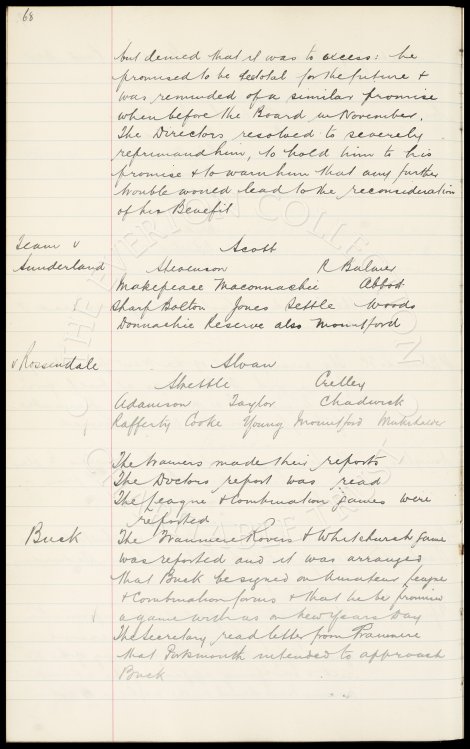 68
but denied that it was to excess: he
promised to be teetotal for the future &
was reminded of a similar promise
when before the Board in November.
The Directors resolved to severely
reprimand him, to hold him to his
promise & to warn him that any further
trouble would lead to the reconsideration
of his Benefit
Team v Scott
Sunderland Stevenson R Balmer
Makepeace Maconnachie Abbott
Sharp Bolton Jones Settle Woods
Donnachie Reserve also Mountford
v Rossendale Sloan
Strettle Crelley
Adamson Taylor Chadwick
Rafferty Cooke Young Mountford
The trainers made their reports
The Doctors report was read
The League & Combination games were
reported
Buck The Tranmere Rovers & Whitchurch game
was reported and it was arranged
that Buck be signed on Amateur League
& Combination forms & that he be promised
a game with us on New Years Day
The Secretary read letter from Tranmere
that Portsmouth intended to approach
Buck
THE EVERTON COLLECTION CHARITABLE TRUST